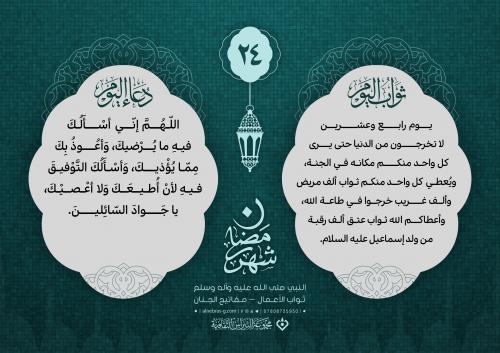 ٢٤
ثواب اليوم
يـوم رابـــع وعشـــرين
لا تخرجـــون من الدنيا حتى يـــرى
كل واحد منكـــم مكانه في الجنة،
ويُعطي كل واحد منكم ثواب ألف مريض
وألـــف غـــريب خرجوا في طاعة الله،
وأعطاكـــم الله ثـواب عتـق ألف رقبة
من ولد إسماعيل عليه السلام.
دعاء اليوم
اللّـهُمَّ إنّـي أسْـــأَلُكَ
فيهِ ما يُـــرْضيكَ، وَأعُـــوذُ بِكَ
مِمّا يُؤْذيـــكَ، وَأسْـأَلُكَ التَّوْفيقَ
فـيـهِ لأنْ أُطـيعَـــكَ وَلا أعْـصـيْـكَ،
يا جَـــوادَ السّـائِليـنَ.
شهر رمضان
النبـي صلى الله عليه وآله وسلم
ثـواب الأعمـال – مفـاتيح الجنـان
alnebras-g.com
07808735950
مجموعة النبراس الثقافية